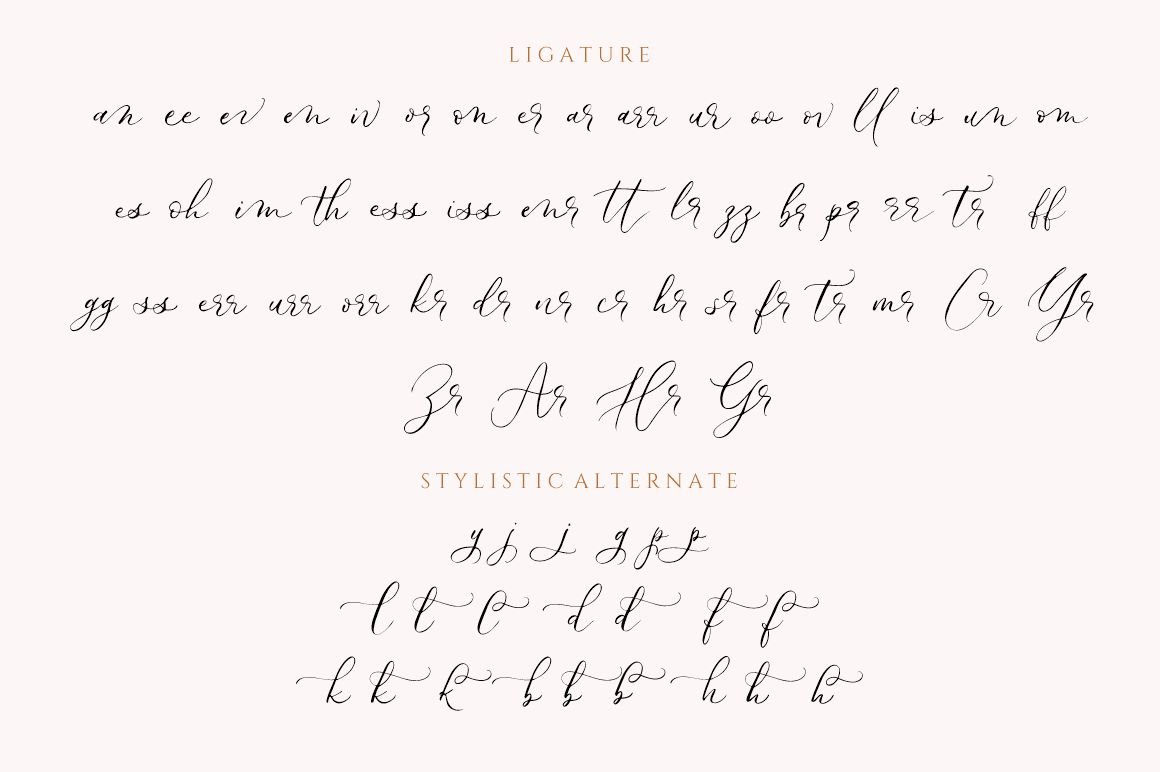 LIGATURE
an ee ev en iv or on er ar arr ur oo ov ll is un om
es oh im th ess iss enr tt lr zz br pr rr tr ff
gg ss err urr orr kr dr nr cr hr sr fr tr mr Cr Yr
Zr Ar Hr Gr
STYLISTIC ALTERNATE
y j j g p p
l l l d d f f
k k k b b b h h h